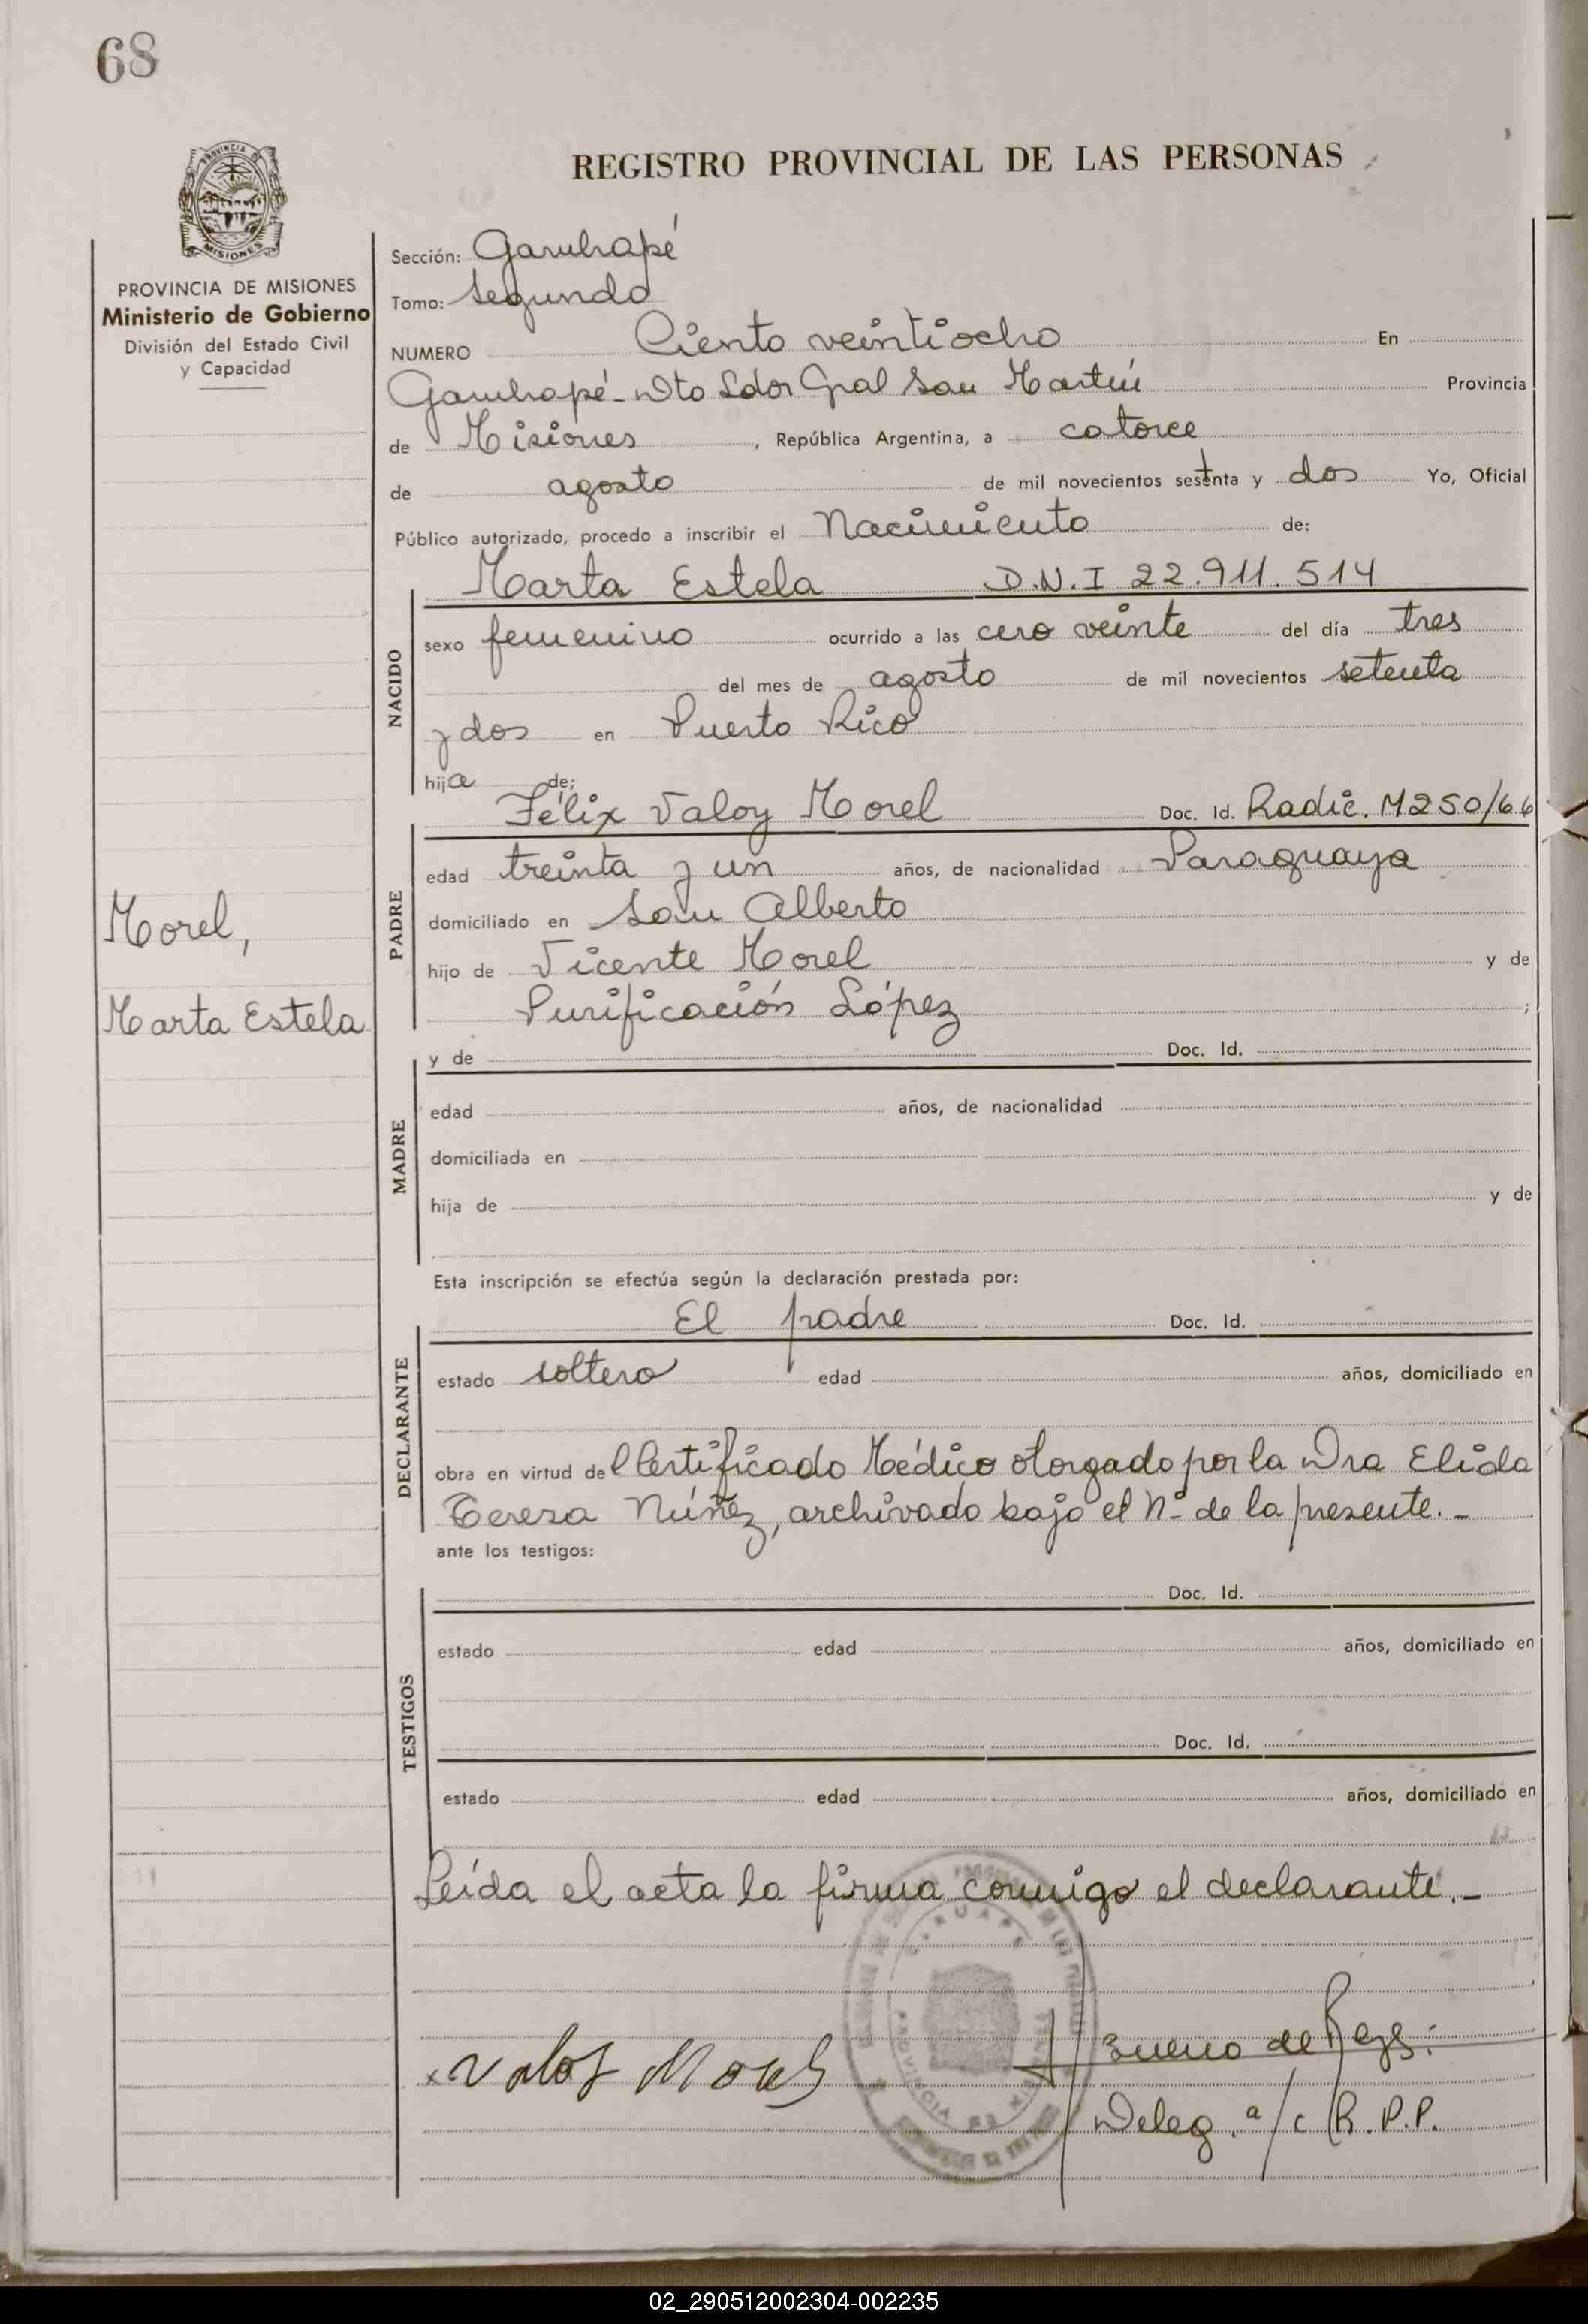 68
REGISTRO PROVINCIAL DE LAS PERSONAS
PROVINCIA DE MISIONES
Ministerio de Gobierno
División del Estado Civil
y Capacidad
Sección: Garuhapé
Tomo: Segundo
NUMERO Ciento veintiocho En
Garuhapé - Dto Ldor Gral San Martín Provincia
de Misiones, República Argentina, a catorce
de agosto de mil novecientos setenta y dos Yo, Oficial
Público autorizado, procedo a inscribir el Nacimiento de:
NACIDO
Marta Estela D.N.I 22.911.514
sexo femenino ocurrido a las cero veinte del día tres
del mes de agosto de mil novecientos setenta
y dos en Puerto Rico
hija de:
PADRE
Félix Valoy Morel Doc. Id. Radic. M250/66
edad treinta y un años, de nacionalidad Paraguaya
domiciliado en San Alberto
hijo de Vicente Morel y de
Purificación López ;
Morel,
Marta Estela
MADRE
y de Doc. Id.
edad años, de nacionalidad
domiciliada en
hija de y de
Esta inscripción se efectúa según la declaración prestada por:
DECLARANTE
El padre Doc. Id.
estado soltero edad años, domiciliado en
obra en virtud del Certificado Médico otorgado por la Dra Elida
Teresa Núñez, archivado bajo el Nº de la presente.-
ante los testigos:
TESTIGOS
Doc. Id.
estado edad años, domiciliado en
Doc. Id.
estado edad años, domiciliado en
Leída el acta la firma conmigo el declarante.-
x Valoy Morel
Bueno de Reys.
Deleg. a/c R.P.P.
02_290512002304-002235